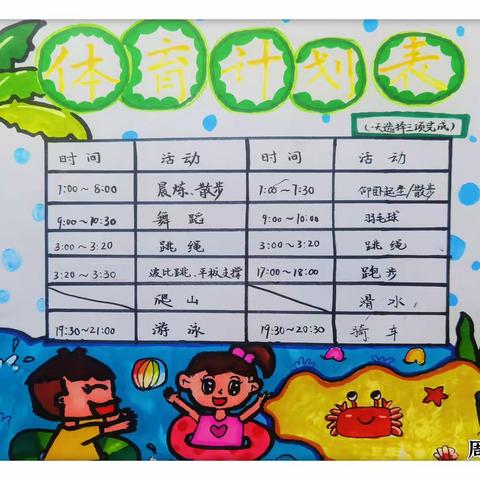 体育计划表
(一天选择三项完成)
时间 活动 时间 活动
7:00~8:00 晨炼、散步 7:00~7:30 仰卧起坐/散步
9:00~10:30 舞蹈 9:00~10:00 羽毛球
3:00~3:20 跳绳 3:00~3:20 跳绳
3:20~3:30 波比跳、平板支撑 17:00~18:00 跑步
爬山 滑水
19:30~21:00 游泳 19:30~20:30 骑车
周